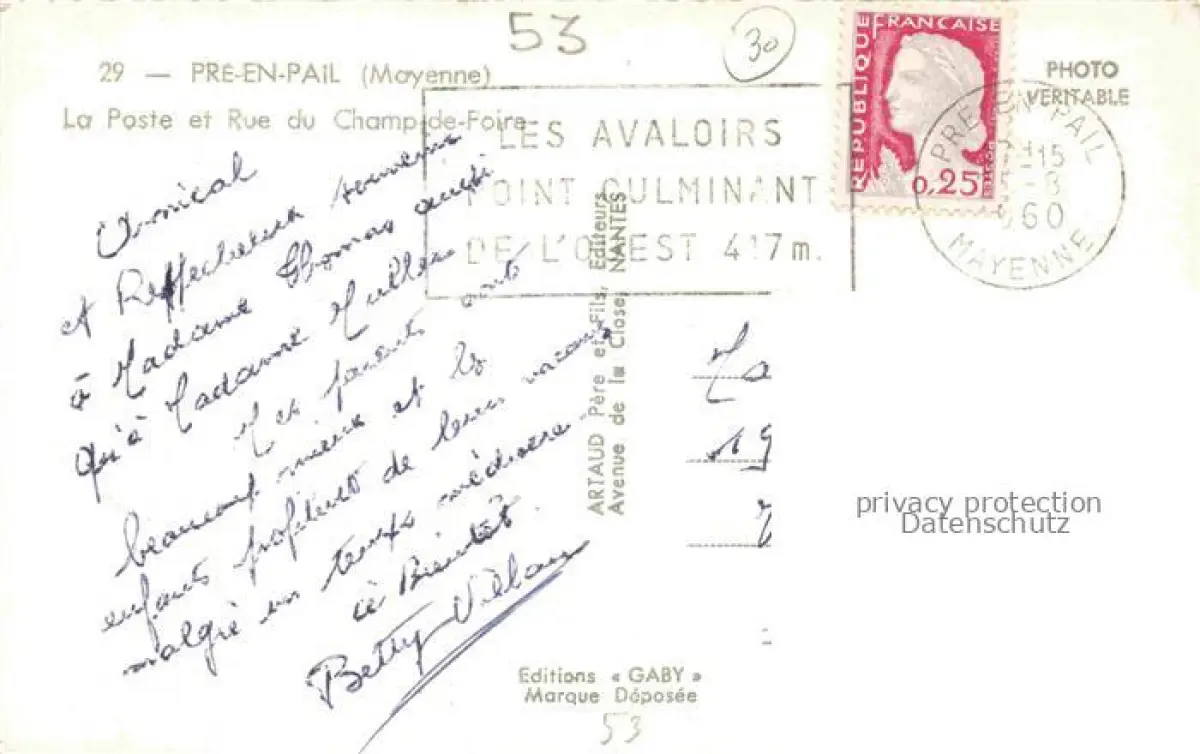 53
30
29 — PRÉ-EN-PAIL (Mayenne)
La Poste et Rue du Champ-de-Foire
LES AVALOIRS
POINT CULMINANT
DE L'OUEST 417 m.
RÉPUBLIQUE FRANÇAISE
0,25
PHOTO
VÉRITABLE
PRE-EN-PAIL
15
-8
60
MAYENNE
Amical
et Respectueux souvenirs
à Madame Thomas ainsi
qu'à Madame Muller
Mes parents vont
beaucoup mieux et les
enfants profitent de leurs vacances
malgré un temps médiocre.
à Bientôt.
Betty
ARTAUD Père et Fils, Editeurs
Avenue de la Close, NANTES
Ma
19
privacy protection
Datenschutz
Editions « GABY »
Marque Déposée
53